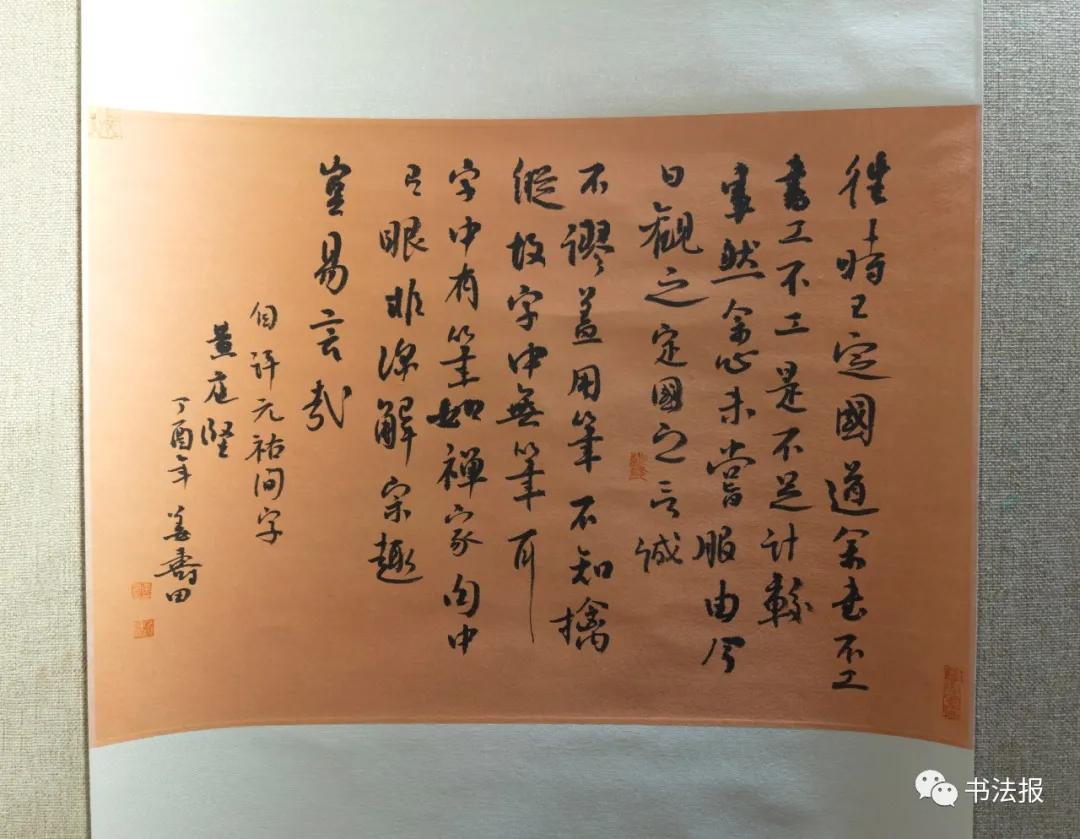 往時王定國道余書不工
書工不工是不足計較
事然余心未嘗服由今
日觀之定國之言誠
不謬蓋用筆不知擒
縱故字中無筆耳
字中有筆如禪家句中
有眼非深解宗趣
豈易言哉
自評元祐間字
黄庭堅
丁酉年 姜壽田
书法报